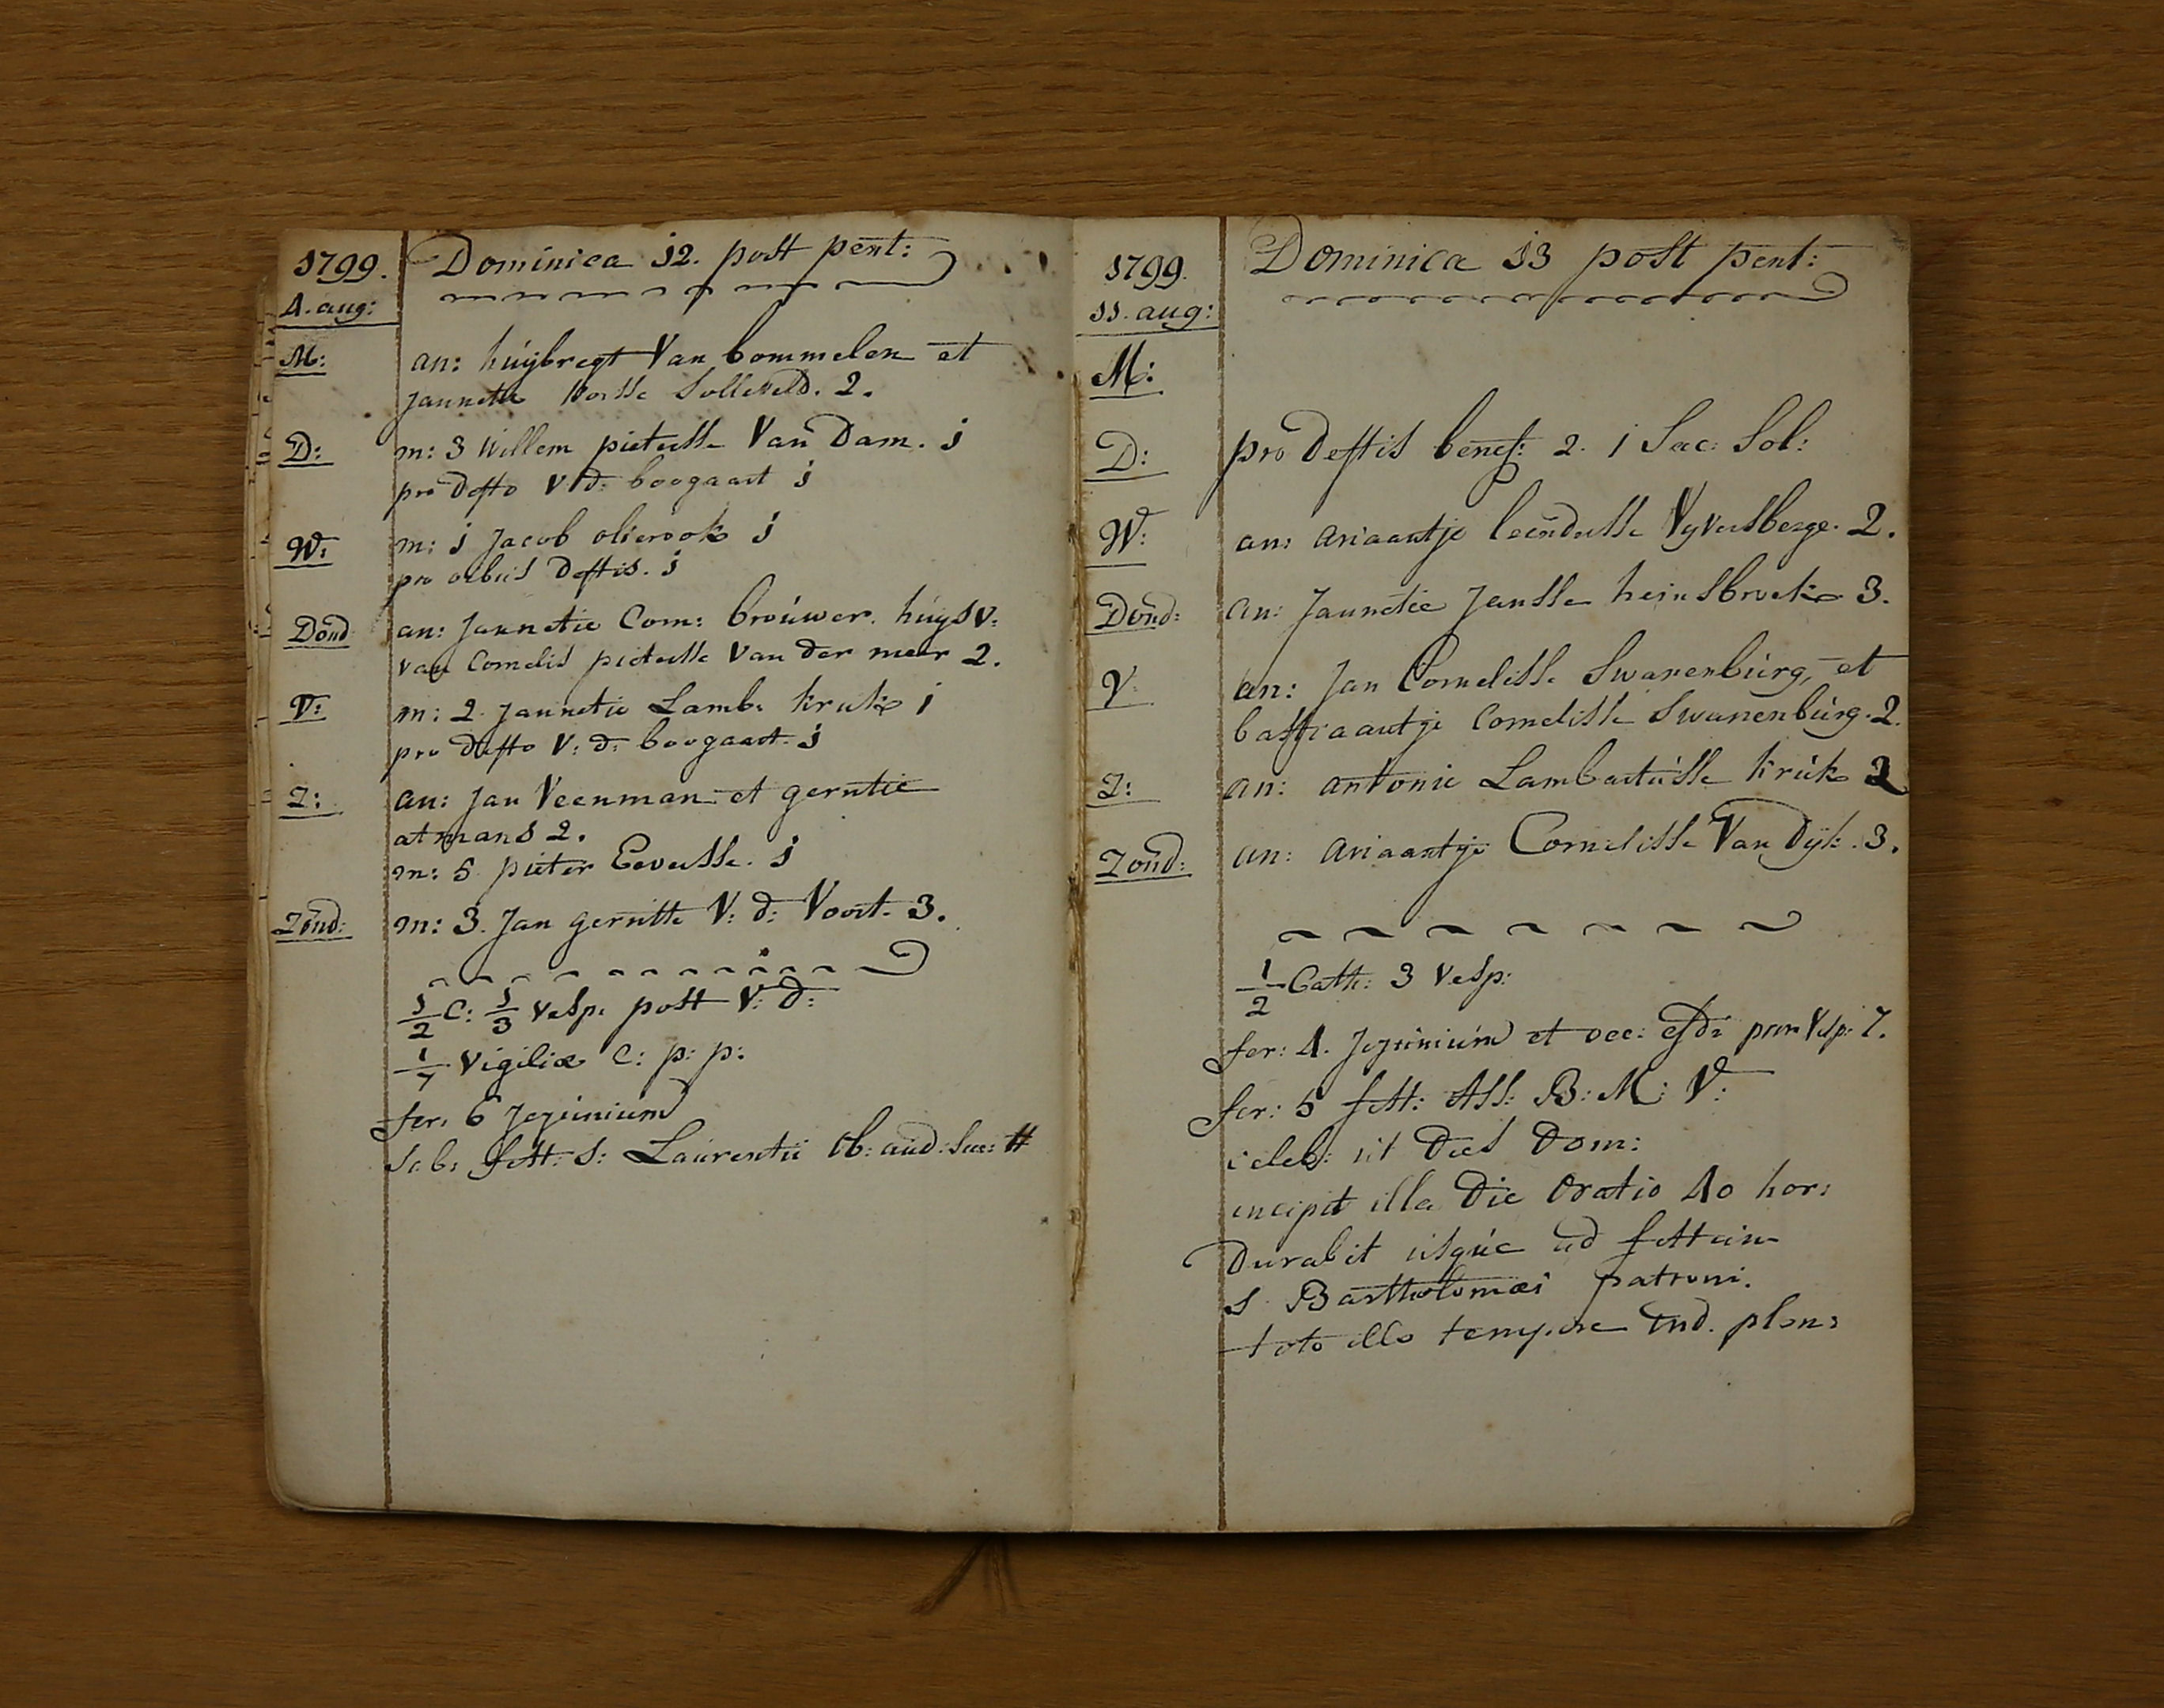 1799.
4. aug:
Dominica 12. post pent:
M:
an: huijbregt Van bommelen et
Jannetie Solleveld. 2.
D:
m: 3 Willem pieterse Van Dam. j
pro defto V: d: boogaart j
W:
m: j Jacob olierook j
pro ovibus deftis. j
Dond
an: Jannetie Corn: brouwer. huijsv:
van Cornelis pieterse Van der meer 2.
V:
m: 2. Jannetie Lamb: kruk j
pro defto V: d: boogaart. j
Z:
an: Jan Veenman et gerritie
atmans 2.
m: 5 pieter Eeverse. j
Zond:
m: 3. Jan gerritse V: d: Voort. 3.
1/2 C: 1/3 vesp: post V: d:
1/7 Vigiliæ C: p: p:
fer: 6 Jejunium
Sab: fest: S: Laurentii ob: aud: Sac: #
1799.
11. aug:
Dominica 13 post pent:
M:
D:
pro deftis benef: 2. 1 Sac: Sol:
W:
an: Ariaantje leenderse Vijverberge. 2.
Dond:
an: Jannetie Janse heinsbroek 3.
V:
an: Jan Cornelisse Swanenburg, et
bastiaantje Cornelisse Swanenburg. 2.
Z:
an: antonie Lambertusse kruk 2
Zond:
an: Ariaantje Cornelisse Van Dijk. 3.
1/2 Cath: 3 Vesp:
fer: 4. Jejunium et occ: Vesp: 7.
fer: 5 fest: Ass: B: M: V:
celeb: ut dies Dom:
incipit illa die Oratio 40 hor:
Durabit usque ad festum
S. Bartholomæi patroni.
toto illo tempore ind. plen: